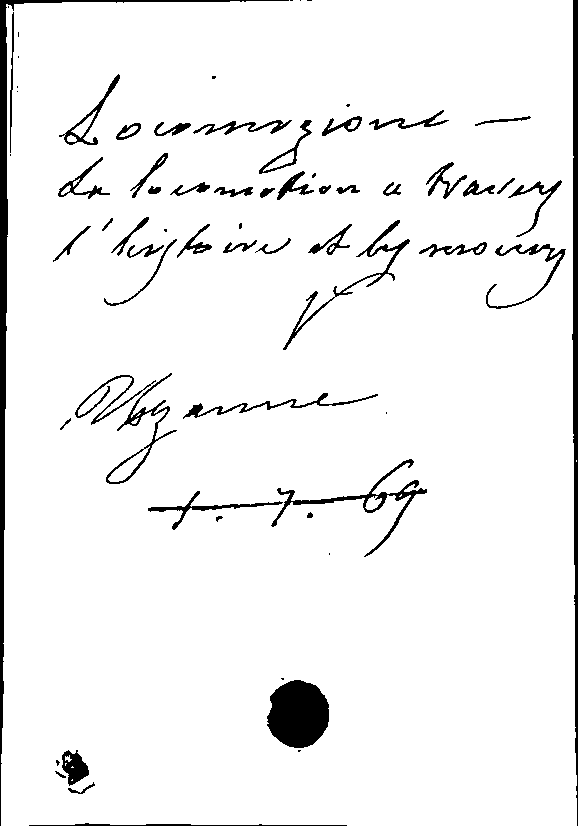 Locomozione —
La locomotion a travers
l'histoire et les moeurs
V
Uzanne
1. 7. 69